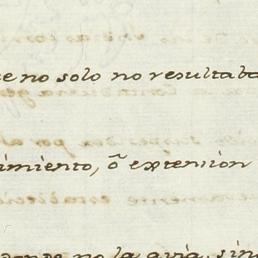 e no solo no resultab
imiento, ó extension
no la avia, sin